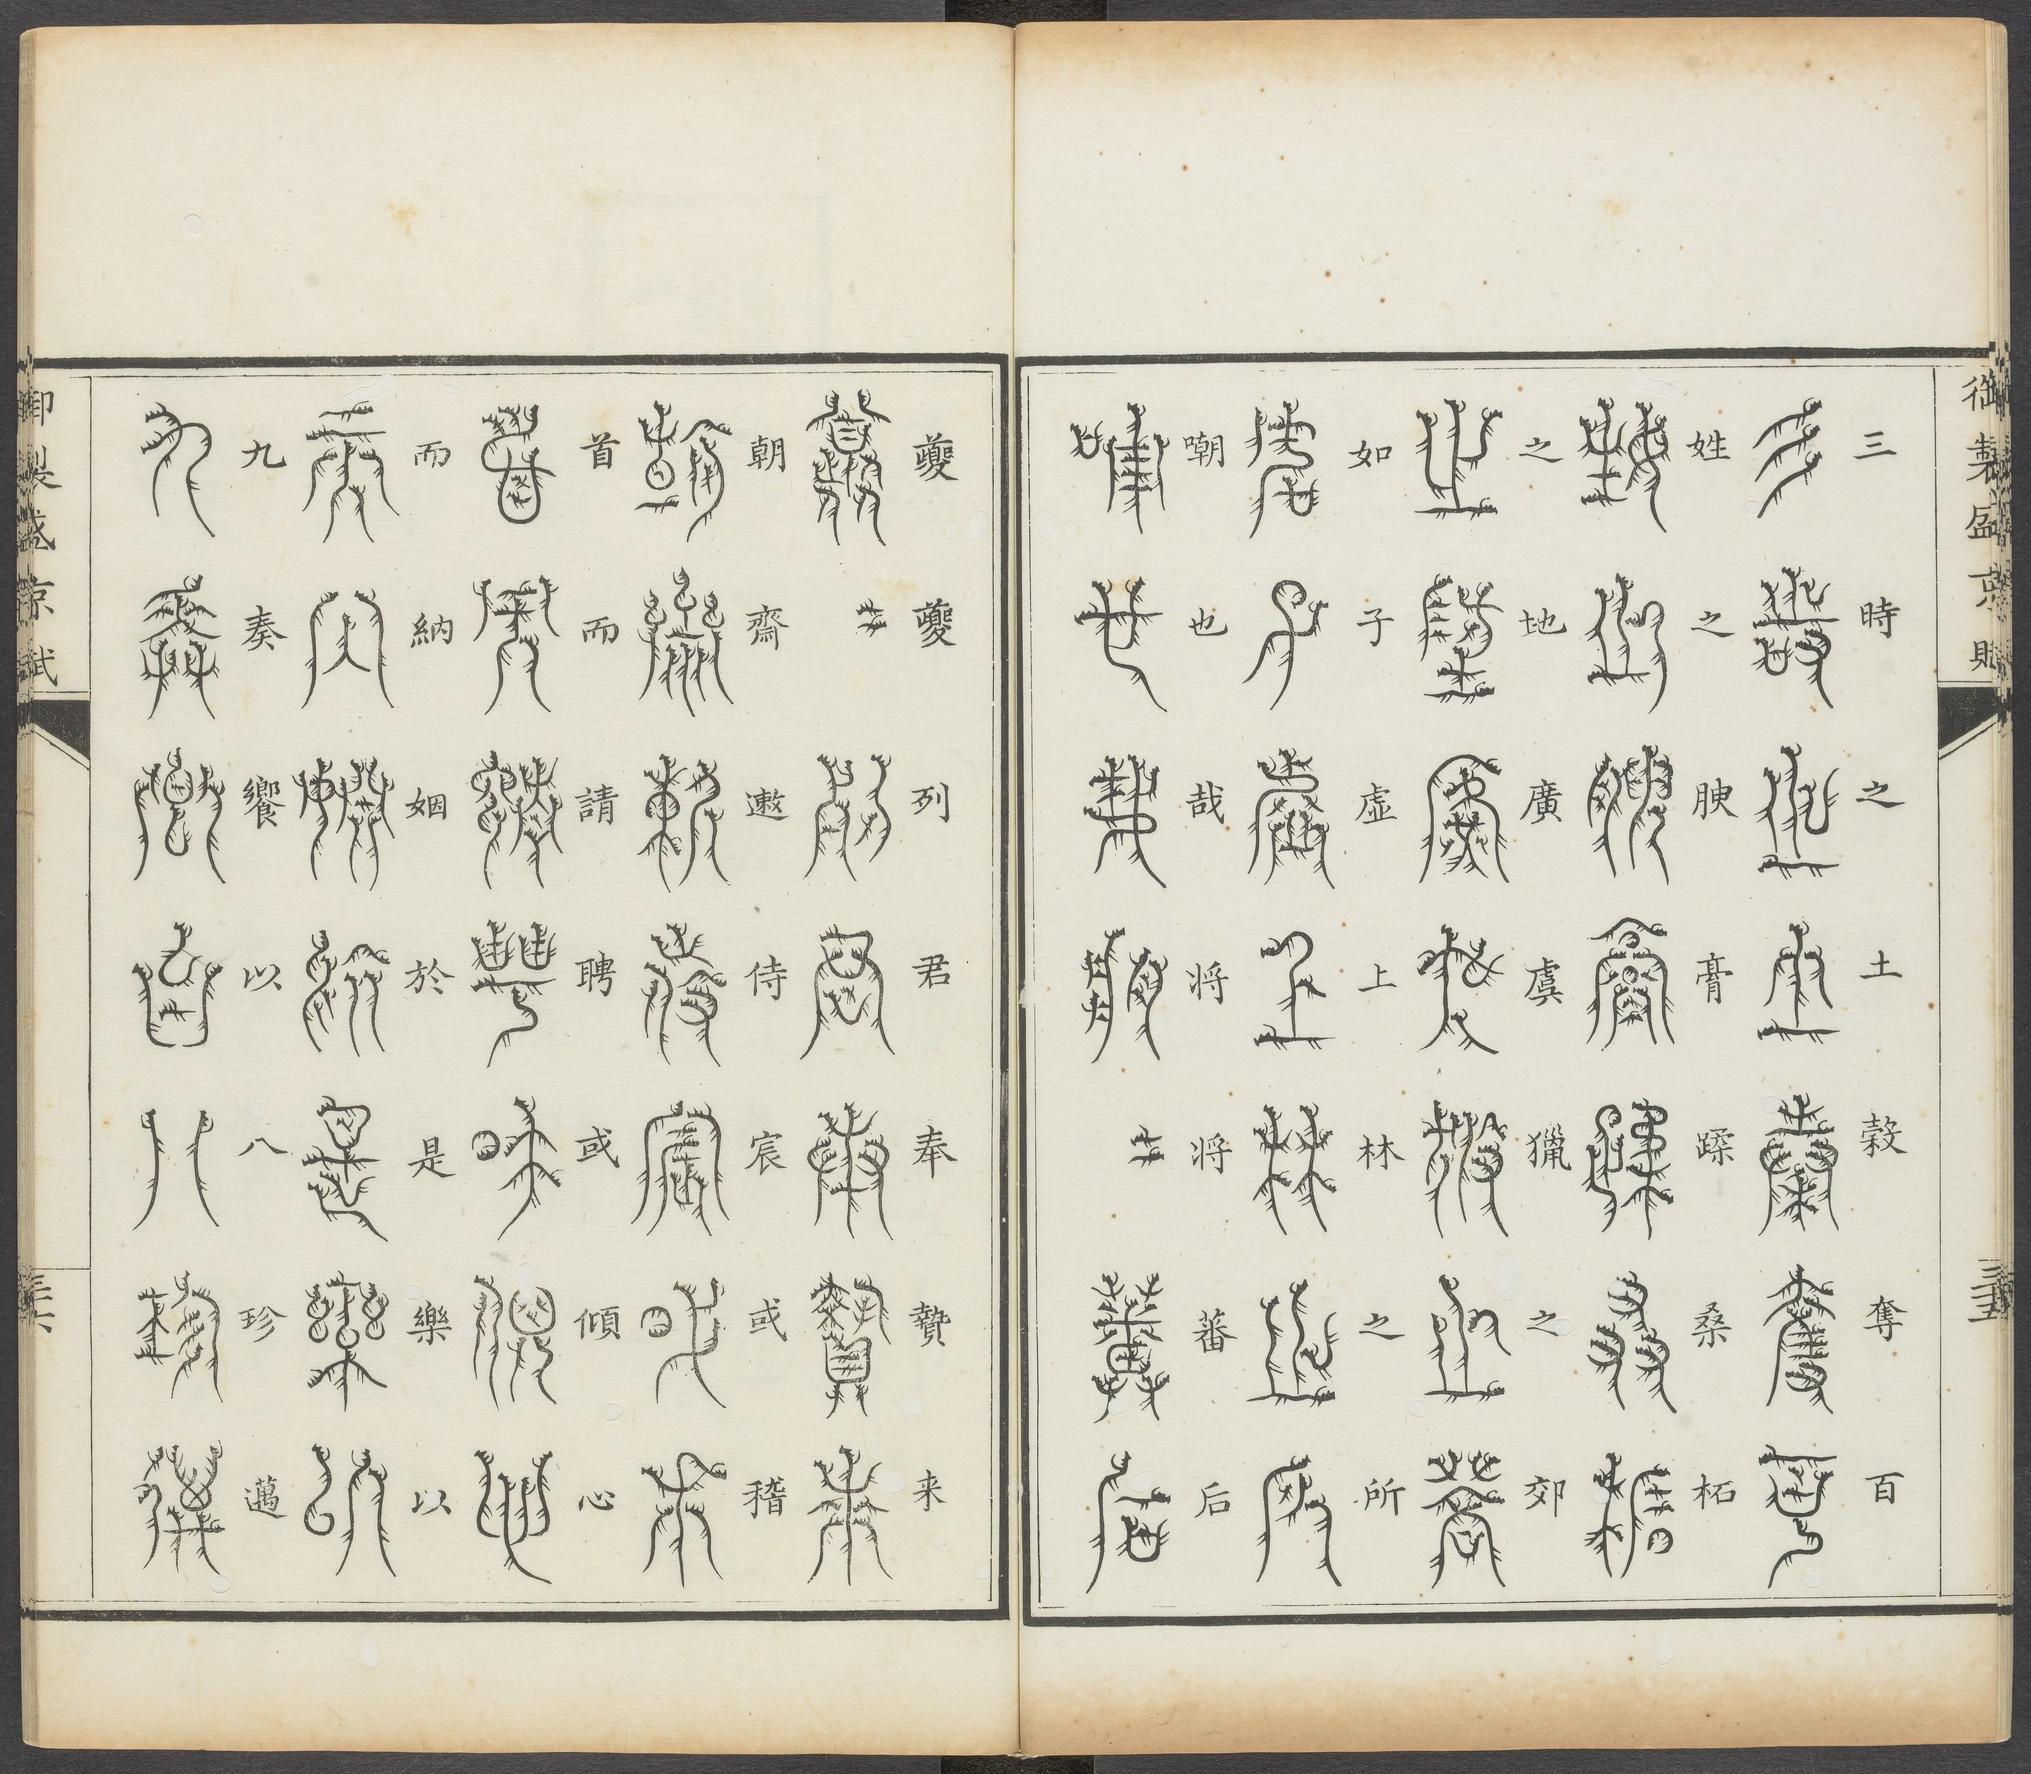 御製盛京賦
三時之土穀奪百
姓之腴膏蹂桑柘
之地廣虞獵之郊
如子虛上林之所
嘲也哉将将蕃后
三十五
夔夔列君奉贄来
朝齋遫侍宸或稽
首而請聘或傾心
而納姻於是樂以
九奏饗以八珍邁
御製盛京賦
三十六